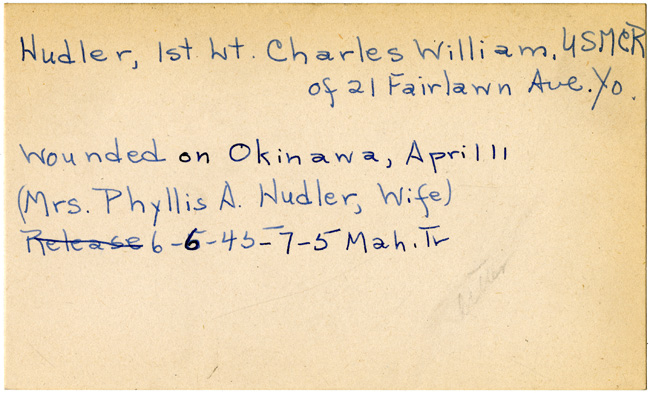 Hudler, 1st Lt. Charles William, USMCR
of 21 Fairlawn Ave. Yo.
Wounded on Okinawa, April 11
(Mrs. Phyllis A. Hudler, Wife)
Release 6-6-45-7-5 Mah. Tr